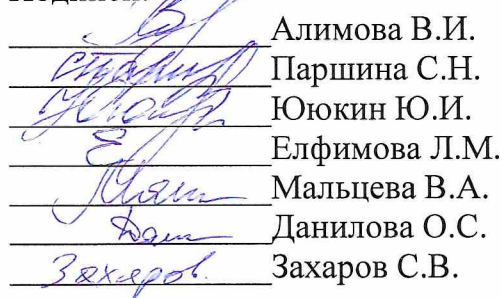 Алимова В.И.
Паршина С.Н.
Ююкин Ю.И.
Елфимова Л.М.
Мальцева В.А.
Данилова О.С.
Захаров. Захаров С.В.